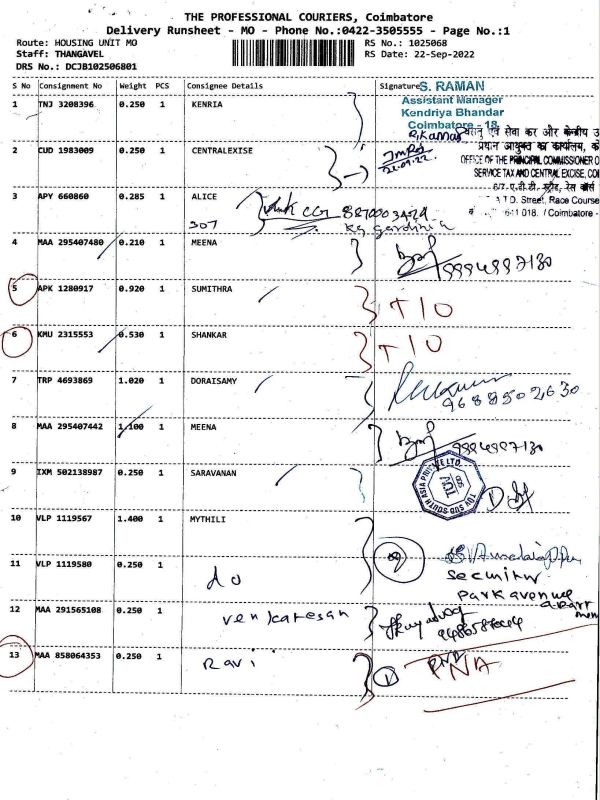 THE PROFESSIONAL COURIERS, Coimbatore
Delivery Runsheet - MO - Phone No.:0422-3505555 - Page No.:1
Route: HOUSING UNIT MO RS No.: 1025068
Staff: THANGAVEL RS Date: 22-Sep-2022
DRS No.: DCJB102506801
S No Consignment No Weight PCS Consignee Details Signature
S. RAMAN
Assistant Manager
Kendriya Bhandar
Coimbatore - 18
1 TNJ 3208396 0.250 1 KENRIA
एवं सेवा कर और केन्द्रीय उ
प्रधान आयुक्त का कार्यालय, को
2 CUD 1983009 0.250 1 CENTRALEXISE
OFFICE OF THE PRINCIPAL COMMISSIONER O
SERVICE TAX AND CENTRAL EXCISE, COI
6/7-ए.टी.डी. स्ट्रीट, रेस कोर्स
A.T.D. Street, Race Course
641 018. / Coimbatore -
3 APY 660860 0.285 1 ALICE
307
4 MAA 295407480 0.210 1 MEENA
9994997130
5 APK 1280917 0.920 1 SUMITHRA T/O
6 KMU 2315553 0.530 1 SHANKAR T/O
7 TRP 4693869 1.020 1 DORAISAMY
9688502630
8 MAA 295407442 1.100 1 MEENA
9994997130
9 IXM 502138987 0.250 1 SARAVANAN
TUV SUD SOUTH ASIA PRIVATE LTD.
10 VLP 1119567 1.400 1 MYTHILI
11 VLP 1119580 0.250 1
do
Security
Park avenue
apartment
12 MAA 291565108 0.250 1 venkatesan
13 MAA 858064353 0.250 1 Ravi
PNA